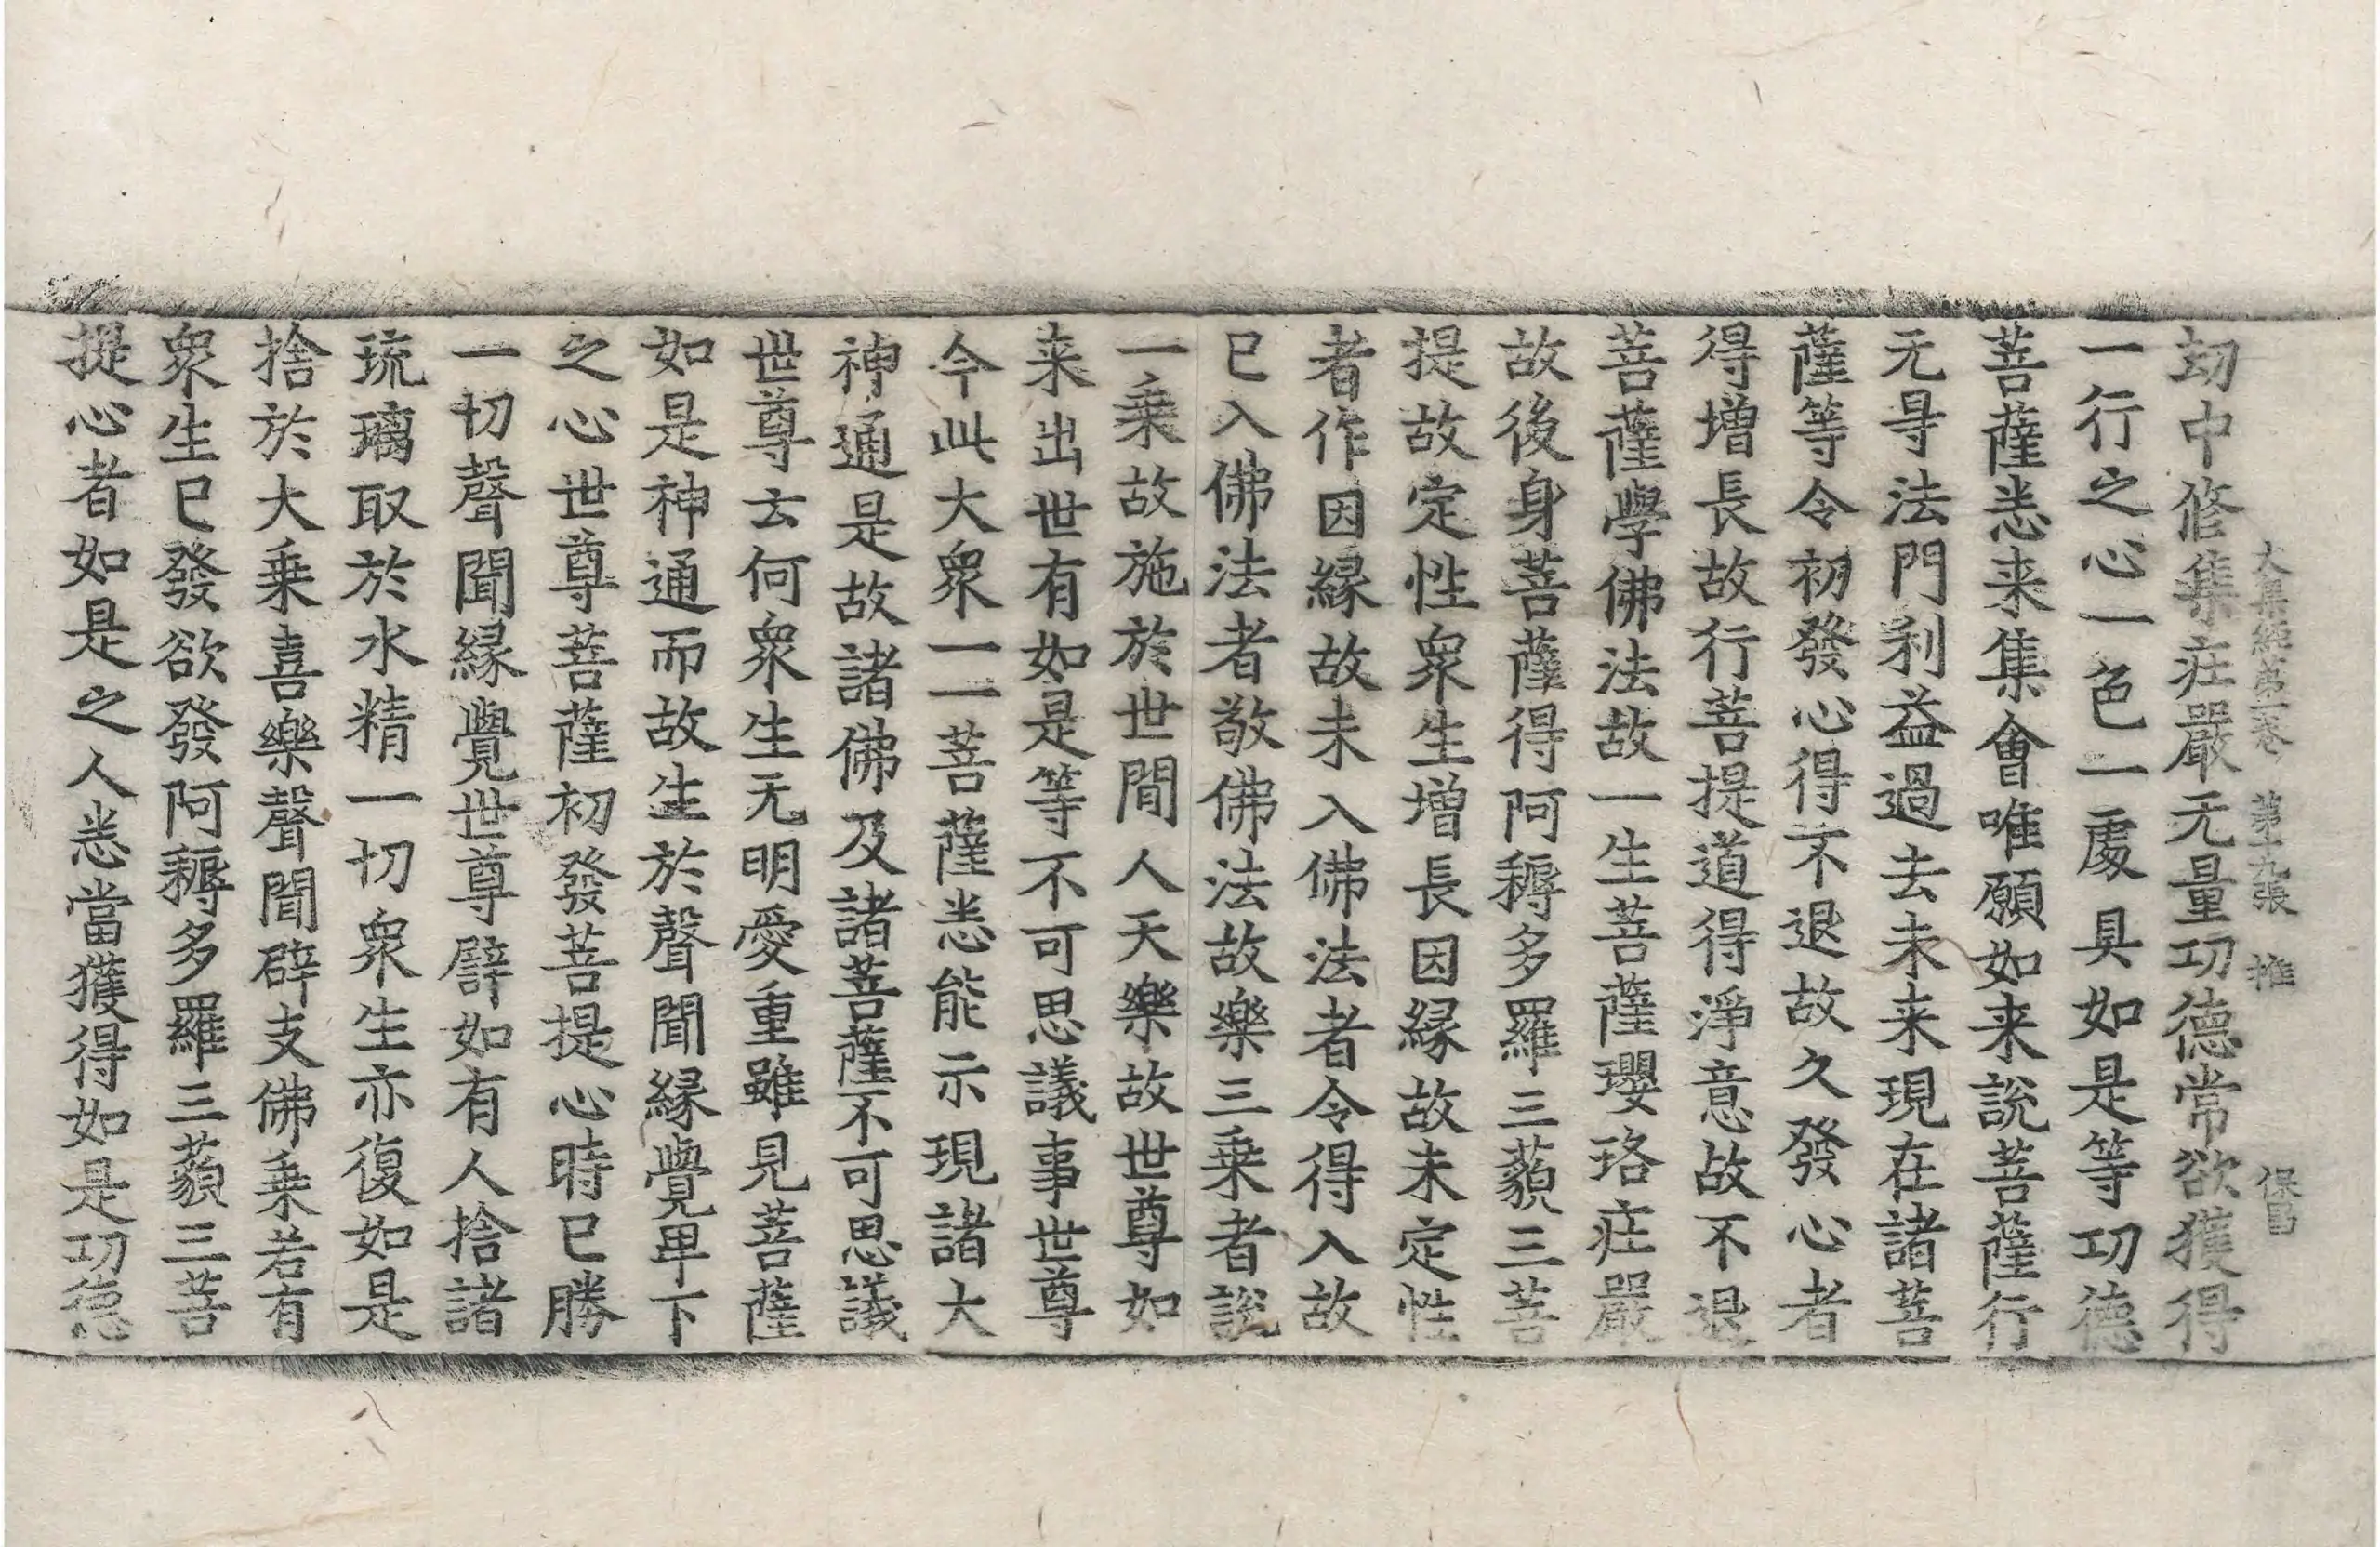 大集經第一卷 第十九張 推 保昌
劫中修集㽵嚴无量功德常欲獲得
一行之心一色一處具如是等功德
菩薩悉来集會唯願如来說菩薩行
无㝵法門利益過去未来現在諸菩
薩等令初發心得不退故久發心者
得增長故行菩提道得淨意故不退
菩薩學佛法故一生菩薩瓔珞㽵嚴
故後身菩薩得阿耨多羅三藐三菩
提故定性衆生增長因緣故未定性
者作因緣故未入佛法者令得入故
已入佛法者敬佛法故樂三乗者說
一乗故施於世間人天樂故世尊如
来出世有如是等不可思議事世尊
今此大衆一一菩薩悉能示現諸大
神通是故諸佛及諸菩薩不可思議
世尊云何衆生无明愛重雖見菩薩
如是神通而故生於聲聞緣覺卑下
之心世尊菩薩初發菩提心時已勝
一切聲聞緣覺世尊譬如有人捨諸
琉璃取於水精一切衆生亦復如是
捨於大乗喜樂聲聞辟支佛乗若有
衆生已發欲發阿耨多羅三藐三菩
提心者如是之人悉當獲得如是功德